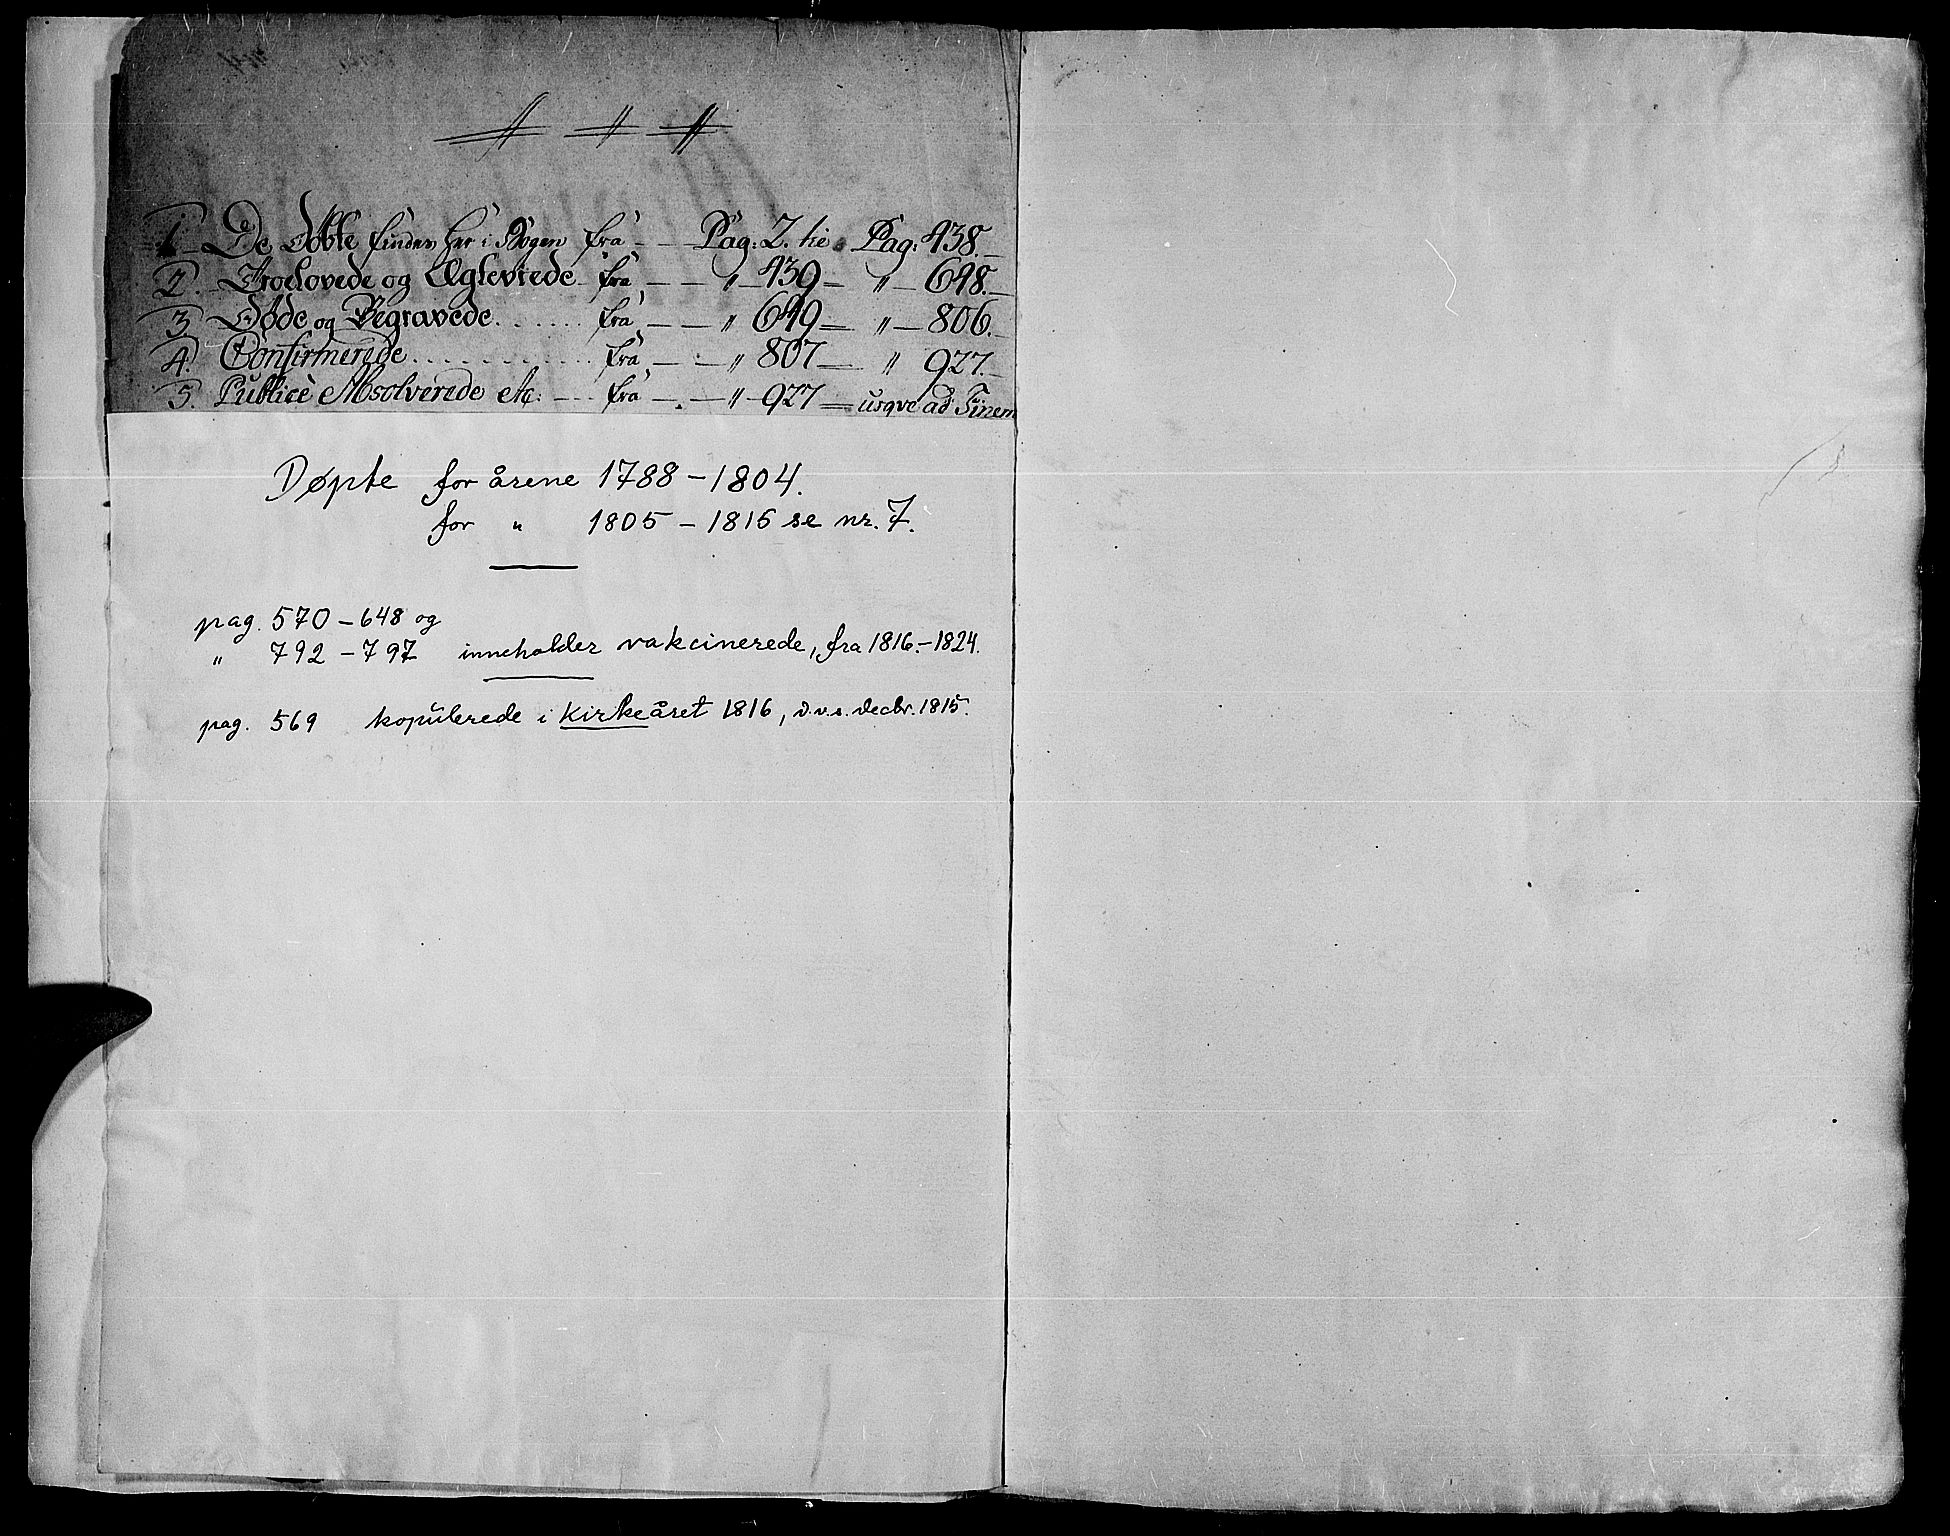 1. De Døbte findes her i Bogen fra — Pag: 2. til Pag: 438.
2. Troelovede og Ægteviede fra — " — 439 — " — 648.
3. Døde og Begravede. . . . . . fra — — " 649 — " — 806.
4. Confirmerede . . . . . . . . . . . . fra — — " 807 — " 927.
5. Publicè Absolverede etc: - - - fra — . — " — 927 — usqve ad Finem
Døpte for årene 1788 – 1804.
for " 1805 – 1815 se nr. 7.
pag. 570 – 648 og
" 792 – 797 inneholder vakcinerede, fra 1816. – 1824.
pag. 569 kopulerede i kirkeåret 1816, d.v.s. decbr. 1815.